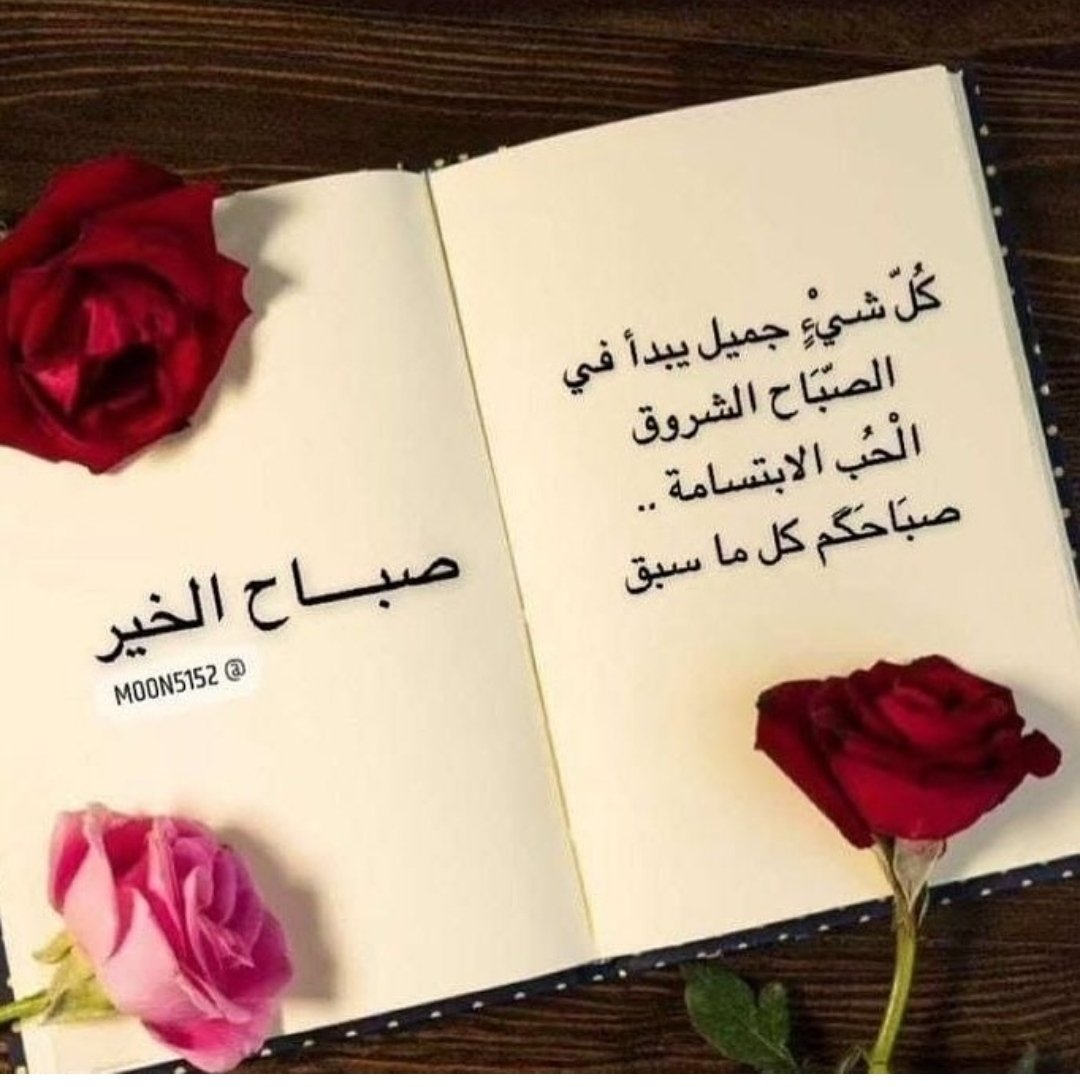 كُلّ شيْءٍ جميل يبدأ في
الصبّبَاح الشروق
الْحُب الابتسامة ..
صبَاحَكَم كل ما سبق
صبـــاح الخير
MOON5152 @